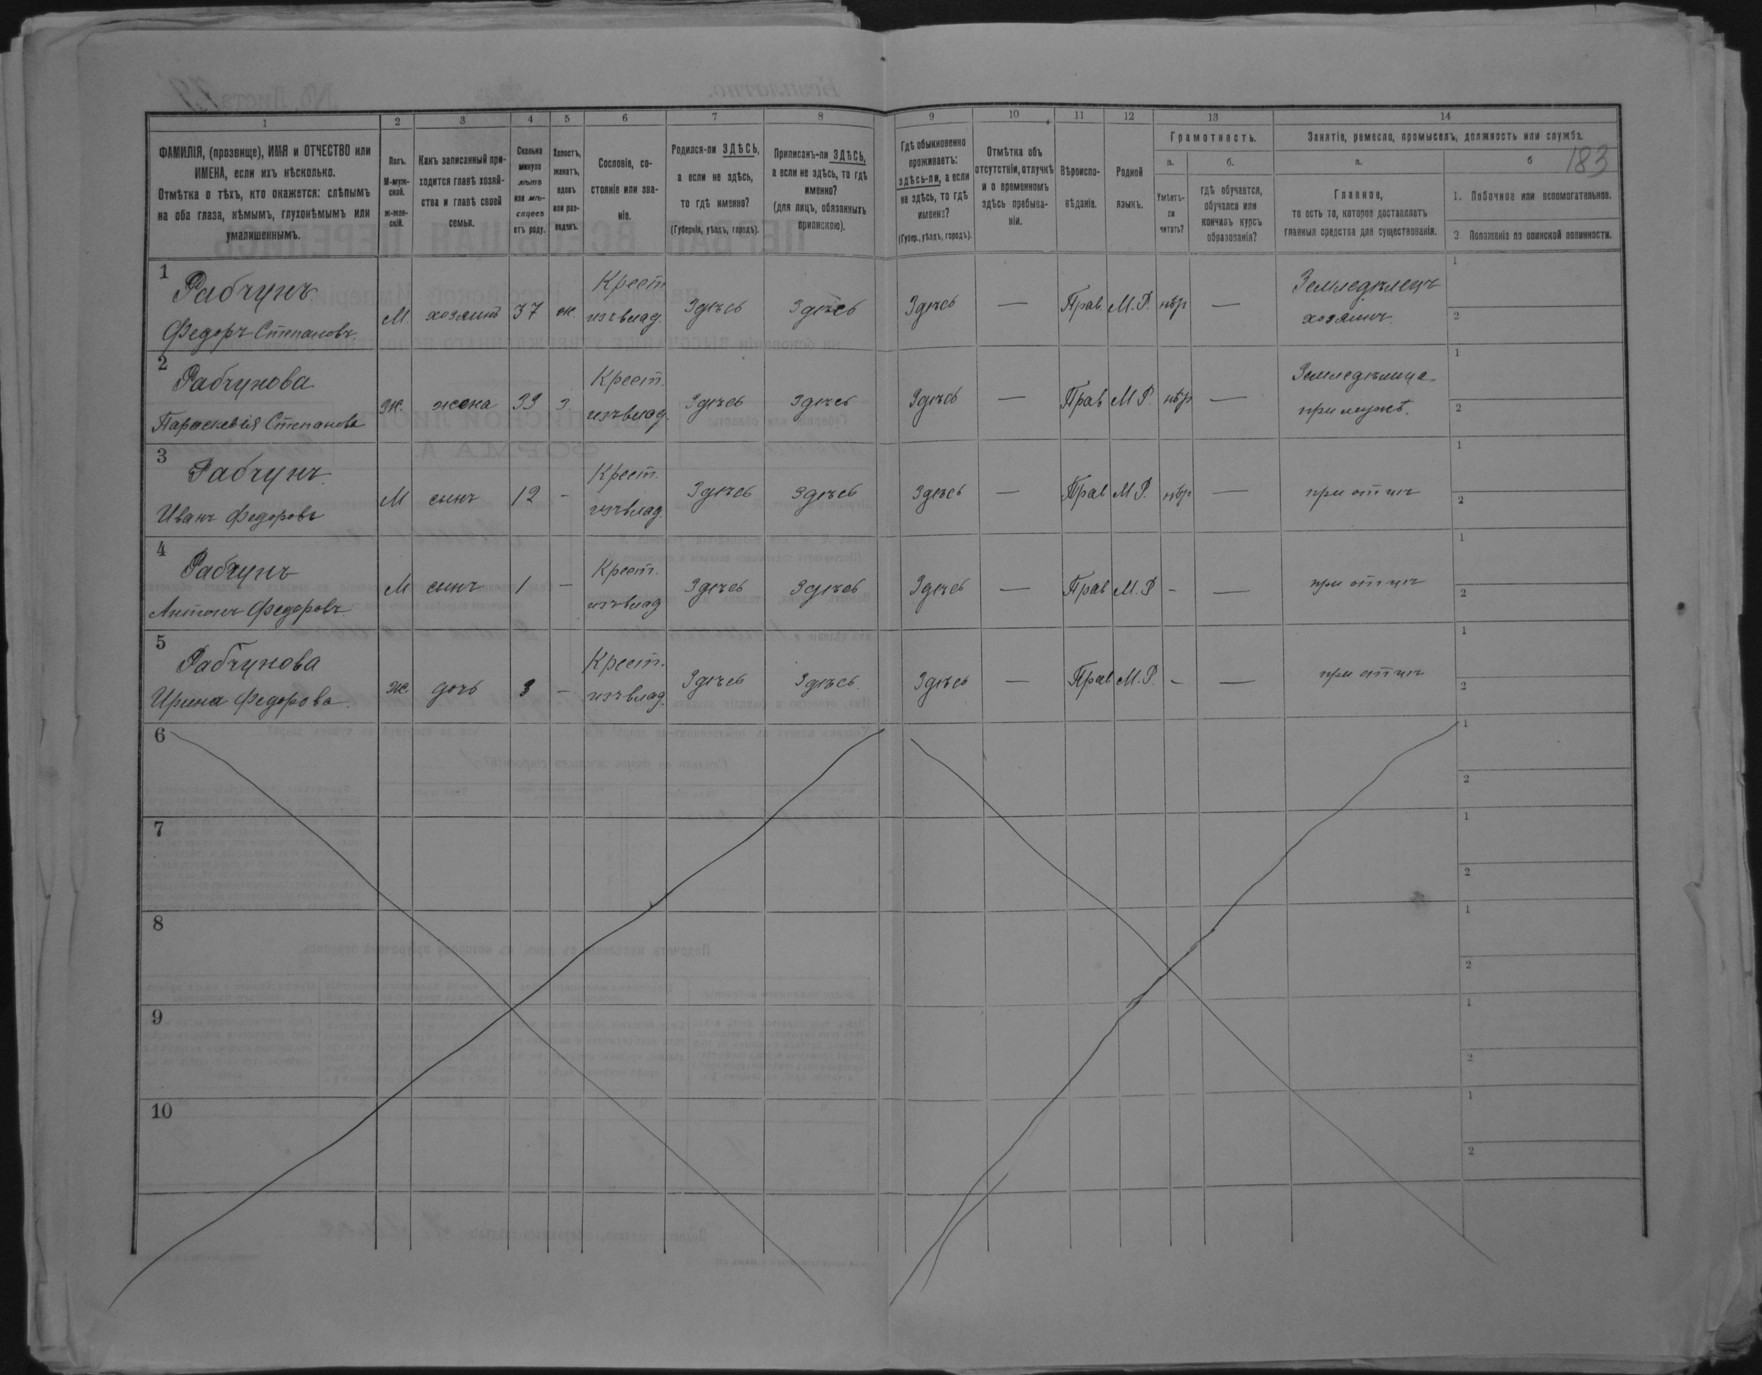 183
1 2 3 4 5 6 7 8 9 10 11 12 13 14
ФАМИЛІЯ, (прозвище), ИМЯ и ОТЧЕСТВО или
ИМЕНА, если ихъ нѣсколько.
Отмѣтка о тѣхъ, кто окажется: слѣпымъ
на оба глаза, нѣмымъ, глухонѣмымъ или
умалишеннымъ.
Полъ.
М-муж-
ской.
ж-жен-
скій.
Какъ записанный при-
ходится главѣ хозяй-
ства и главѣ своей
семьи.
Сколько
минуло
лѣтъ
или мѣ-
сяцевъ
отъ роду.
Холостъ,
женатъ,
вдовъ
или раз-
веденъ.
Сословіе, со-
стояніе или зва-
ніе.
Родился-ли ЗДѢСЬ,
а если не здѣсь,
то гдѣ именно?
(Губернія, уѣздъ, городъ).
Приписанъ-ли ЗДѢСЬ,
а если не здѣсь, то гдѣ
именно?
(для лицъ, обязанныхъ
припискою).
Гдѣ обыкновенно
проживаетъ:
здѣсь-ли, а если
не здѣсь, то гдѣ
именно?
(Губер., уѣздъ, городъ).
Отмѣтка объ
отсутствіи, отлучкѣ
и о временномъ
здѣсь пребыва-
ніи.
Вѣроиспо-
вѣданіе.
Родной
языкъ.
Грамотность.
а.
Умѣетъ-
ли
читать?
б.
гдѣ обучается,
обучался или
кончилъ курсъ
образованія?
Занятіе, ремесло, промыселъ, должность или служба.
а.
Главное,
то есть то, которое доставляетъ
главныя средства для существованія.
б
1. Побочное или вспомогательное.
2 Положеніе по воинской повинности.
1 Рабчунъ
Федоръ Степановъ.
М. хозяинъ 37 ж. Крест. изъ влад. Здѣсь Здѣсь Здѣсь — Прав. М.Р. нѣт — Земледѣлецъ хозяинъ. 1 2
2 Рабчунова
Параскевія Степанова
ж. жена 33 з Крест. изъ влад. Здѣсь Здѣсь Здѣсь — Прав М.Р. нѣт — Земледѣлица при мужѣ. 1 2
3 Рабчунъ
Иванъ Федоровъ
М сынъ 12 - Крест. изъ влад. Здѣсь Здѣсь Здѣсь — Прав М.Р. нѣт — при отцѣ 1 2
4 Рабчунъ
Антонъ Федоровъ
М сынъ 1 - Крест. изъ влад Здѣсь Здѣсь Здѣсь — Прав М.Р - — при отцѣ 1 2
5 Рабчунова
Ирина Федорова.
ж. дочь 3 - Крест. изъ влад. Здѣсь Здѣсь. Здѣсь — Прав М.Р. - — при отцѣ 1 2
6 1 2
7 1 2
8 1 2
9 1 2
10 1 2